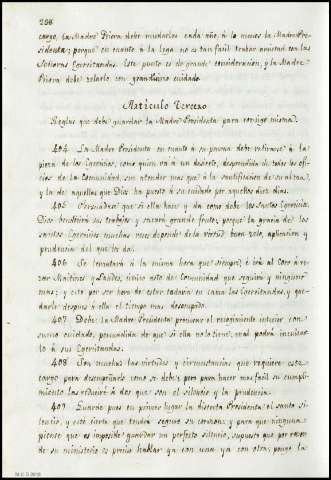 298
cargo, la Madre Priora debe mudarlas cada año, á lo menos la Madre Pre-
sidenta; porque en cuanto á la lega no es tan facil trabar amistad con las
Señoras Egercitandas. Este punto es de grande consideracion, y la Madre
Priora debe zelarlo con grandísimo cuidado.
Articulo Tercero
Reglas que debe guardar la Madre Presidenta para consigo misma.
404 La Madre Presidenta en cuanto á su persona debe retirarse á la
pieza de los Egercicios, como quien va á un desierto, desprendida de todos los ofi-
cios de la Comunidad, sin atender mas que á la santificacion de su alma,
y la de aquellas que Dios ha puesto á su cuidado por aquellos diez dias.
405 Persuadase que si ella hace y da como debe los Santos Egercicios,
Dios bendecirá sus trabajos y sacará grande fruto; porque la gracia de los
santos Egercicios muchas veces depende de la virtud, buen zelo, aplicacion y
prudencia del que los da.
406 Se levantará á la misma hora que siempre, é irá al Coro á re-
zar Maitines y Laudes, único acto de Comunidad que seguirá y ninguno
mas; y esto por ser hora de estar todavia en cama las Egercitandas, y que-
darle despues á ella el tiempo mas desocupado.
407 Debe la Madre Presidenta procurar el recogimiento interior con
sumo cuidado, persuadida de que si ella no lo tiene, mal podrá inculcar-
lo á sus Egercitandas.
408 Son muchas las virtudes y circunstancias que requiere este
cargo para desempeñarlo como se debe; pero para hacer mas facil su cumpli-
miento las reduciré á dos que son el silencio y la prudencia.
409 Guarde pues en primer lugar la discreta Presidenta el santo silen-
cio, y esté cierta que tendrá seguro su corazon; y para que ninguna
piense que es imposible guardar un perfecto silencio, supuesto que por razon
de su ministerio es preciso hablar ya con una ya con otra; ponga la